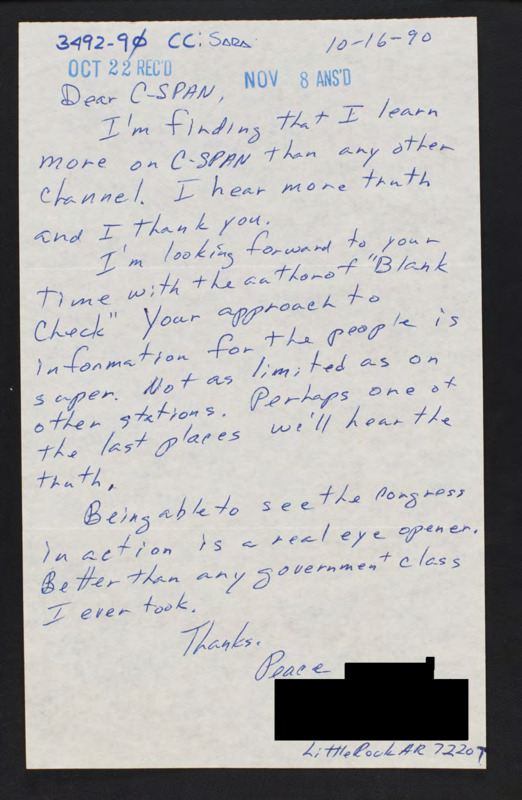 3492-90 CC: Sara
10-16-90
OCT 22 REC'D
NOV 8 ANS'D
Dear C-SPAN,
I'm finding that I learn
more on C-SPAN than any other
channel. I hear more truth
and I thank you.
I'm looking forward to your
time with the author of "Blank
Check" Your approach to
information for the people is
super. Not as limited as on
other stations. Perhaps one of
the last places we'll hear the
truth.
Being able to see the Congress
in action is a real eye opener.
Better than any government class
I ever took.
Thanks.
Peace
Little Rock AR 72207